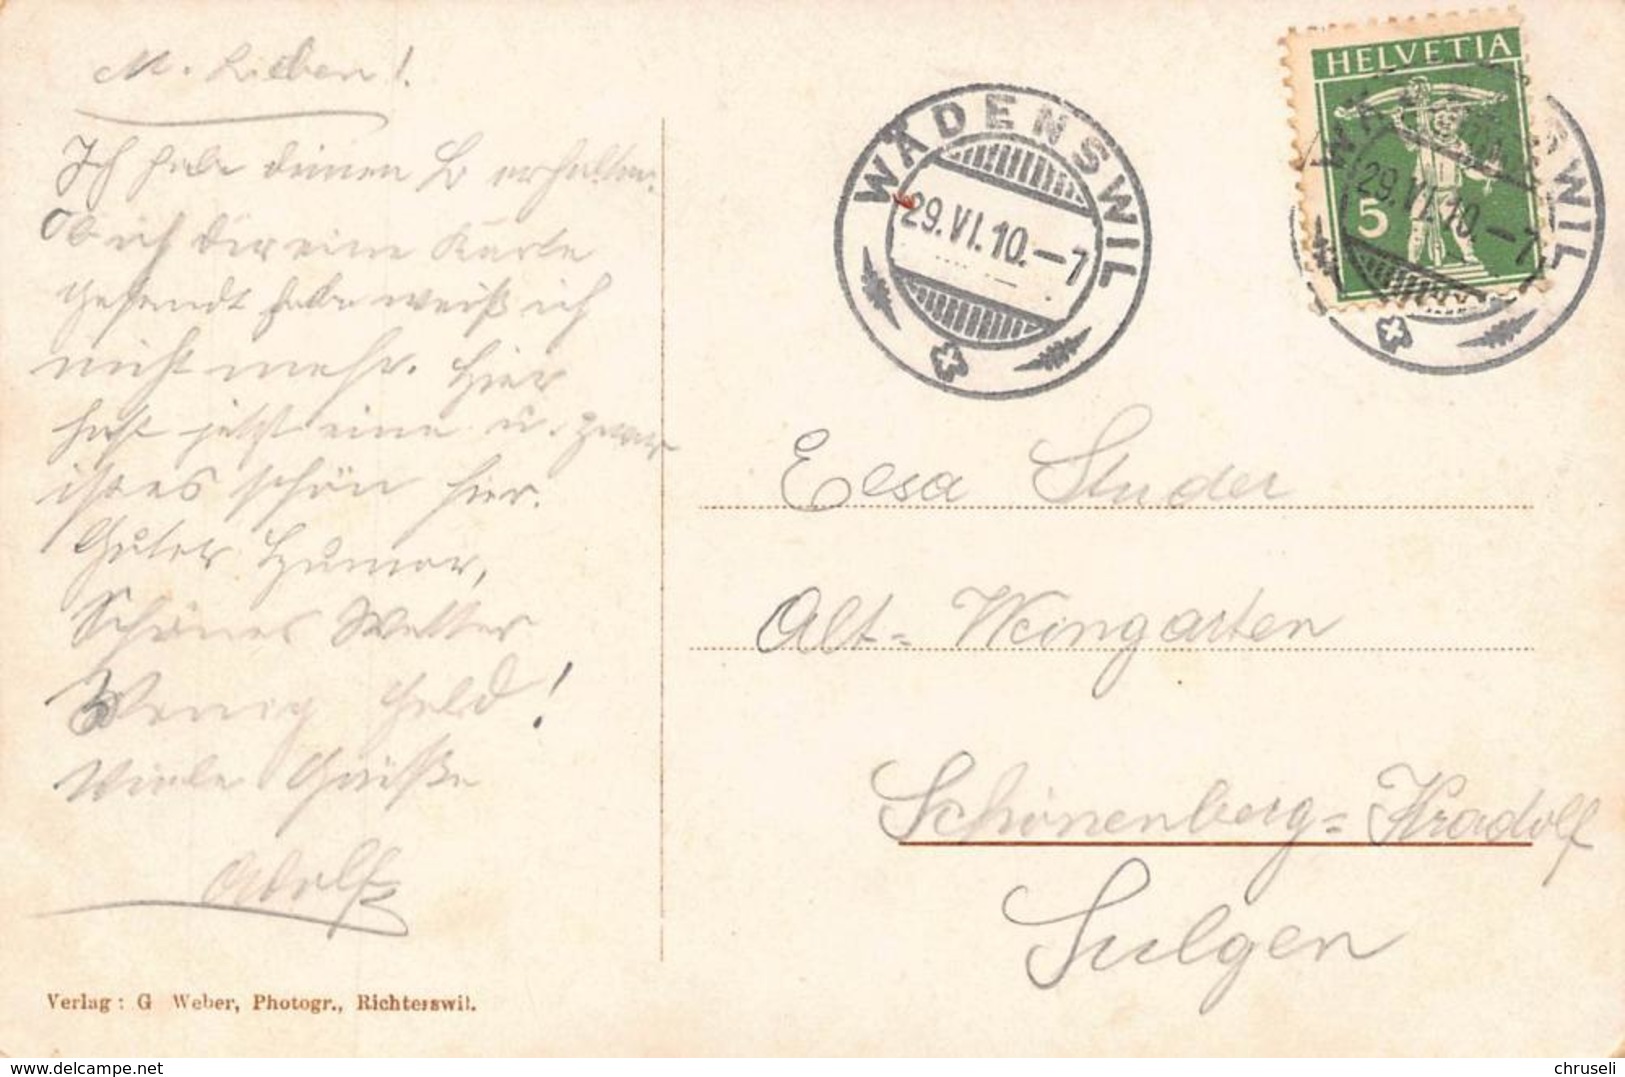 M. Lieben!
Ich habe deinen B erhalten.
Ob ich dir eine Karte
gesendt habe weiß ich
nicht mehr. Hier
hast jetzt eine u. zwar
ist es schön hier.
Guter Humor,
Schönes Wetter
Wenig Geld!
Viele Grüße
Adolf
Verlag: G Weber, Photogr., Richterswil.
WÄDENSWIL
29.VI.10.-7
HELVETIA
5
WÄDENSWIL
29.VI.10.-7
Elsa Studer
Alt-Weingarten
Schönenberg-Kradolf
Sulgen
www.delcampe.net
chruseli